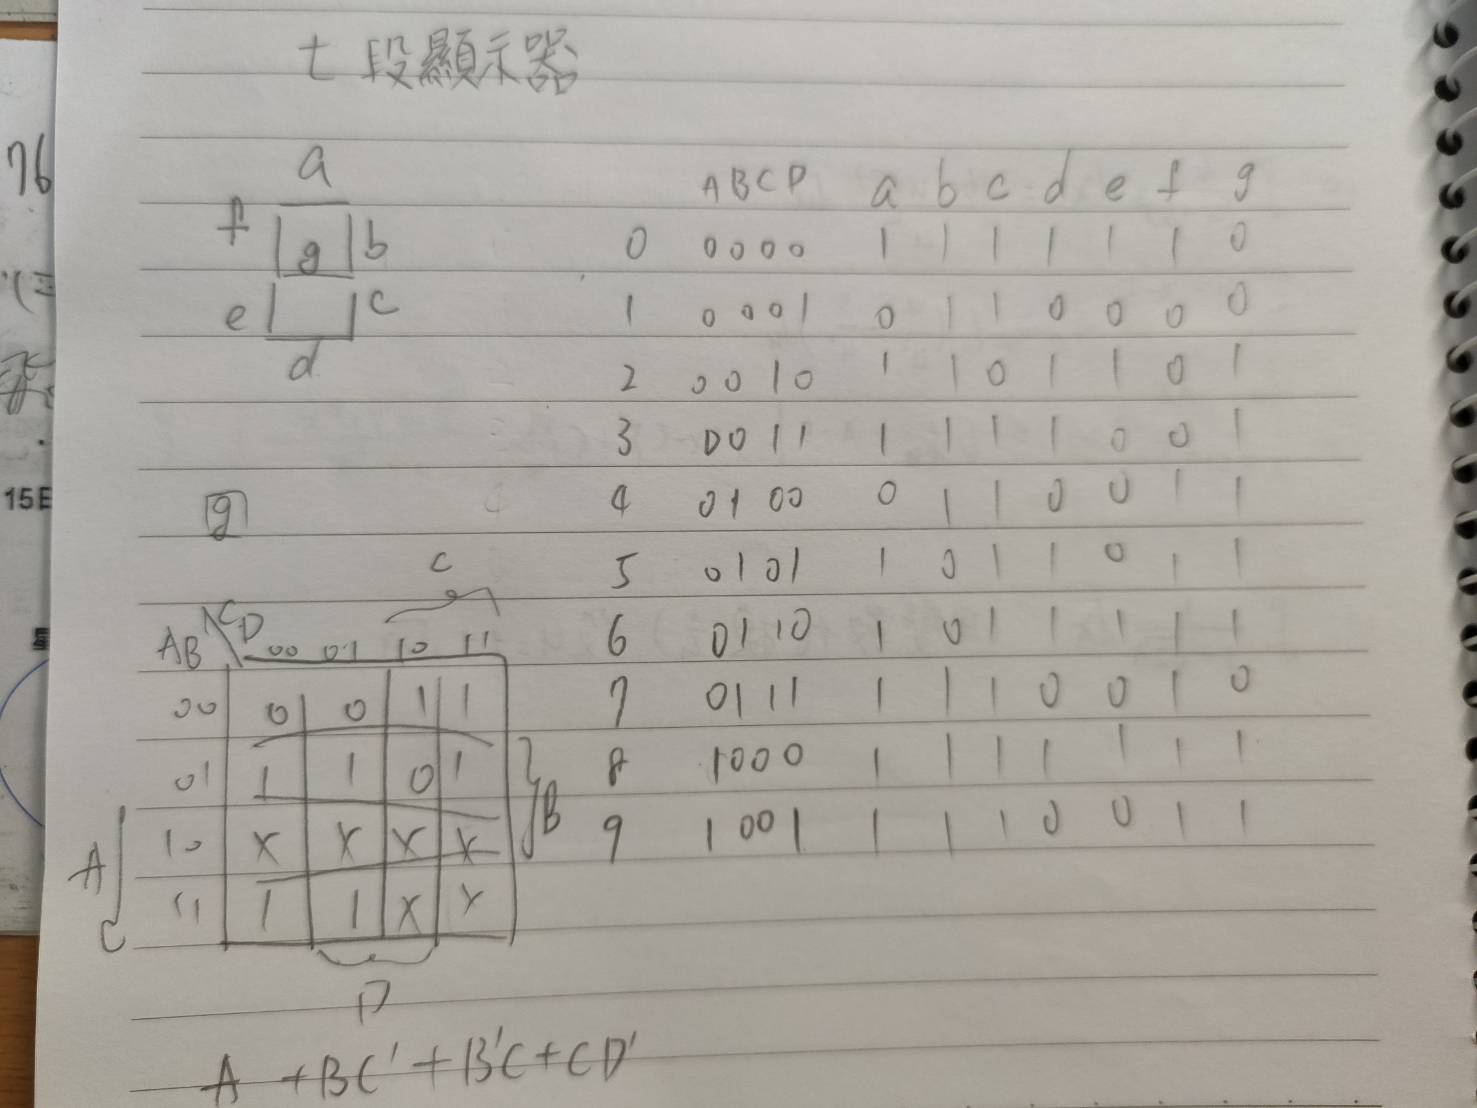 七段顯示器
76
a
f g b
e c
d
A B C D a b c d e f g
0 0000 1 1 1 1 1 1 0
1 0001 0 1 1 0 0 0 0
2 0010 1 1 0 1 1 0 1
3 0011 1 1 1 1 0 0 1
4 0100 0 1 1 0 0 1 1
5 0101 1 0 1 1 0 1 1
6 0110 1 0 1 1 1 1 1
7 0111 1 1 1 0 0 1 0
8 1000 1 1 1 1 1 1 1
9 1001 1 1 1 0 0 1 1
15E
g
C
AB CD 00 01 10 11
00 0 0 1 1
01 1 1 0 1
10 X X X X
11 1 1 X X
B
A
D
A + BC' + B'C + CD'